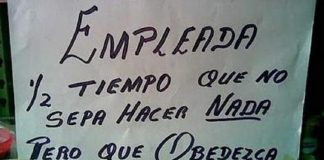 EMPLEADA
1/2 TIEMPO QUE NO
SEPA HACER NADA
PERO QUE OBEDEZCA